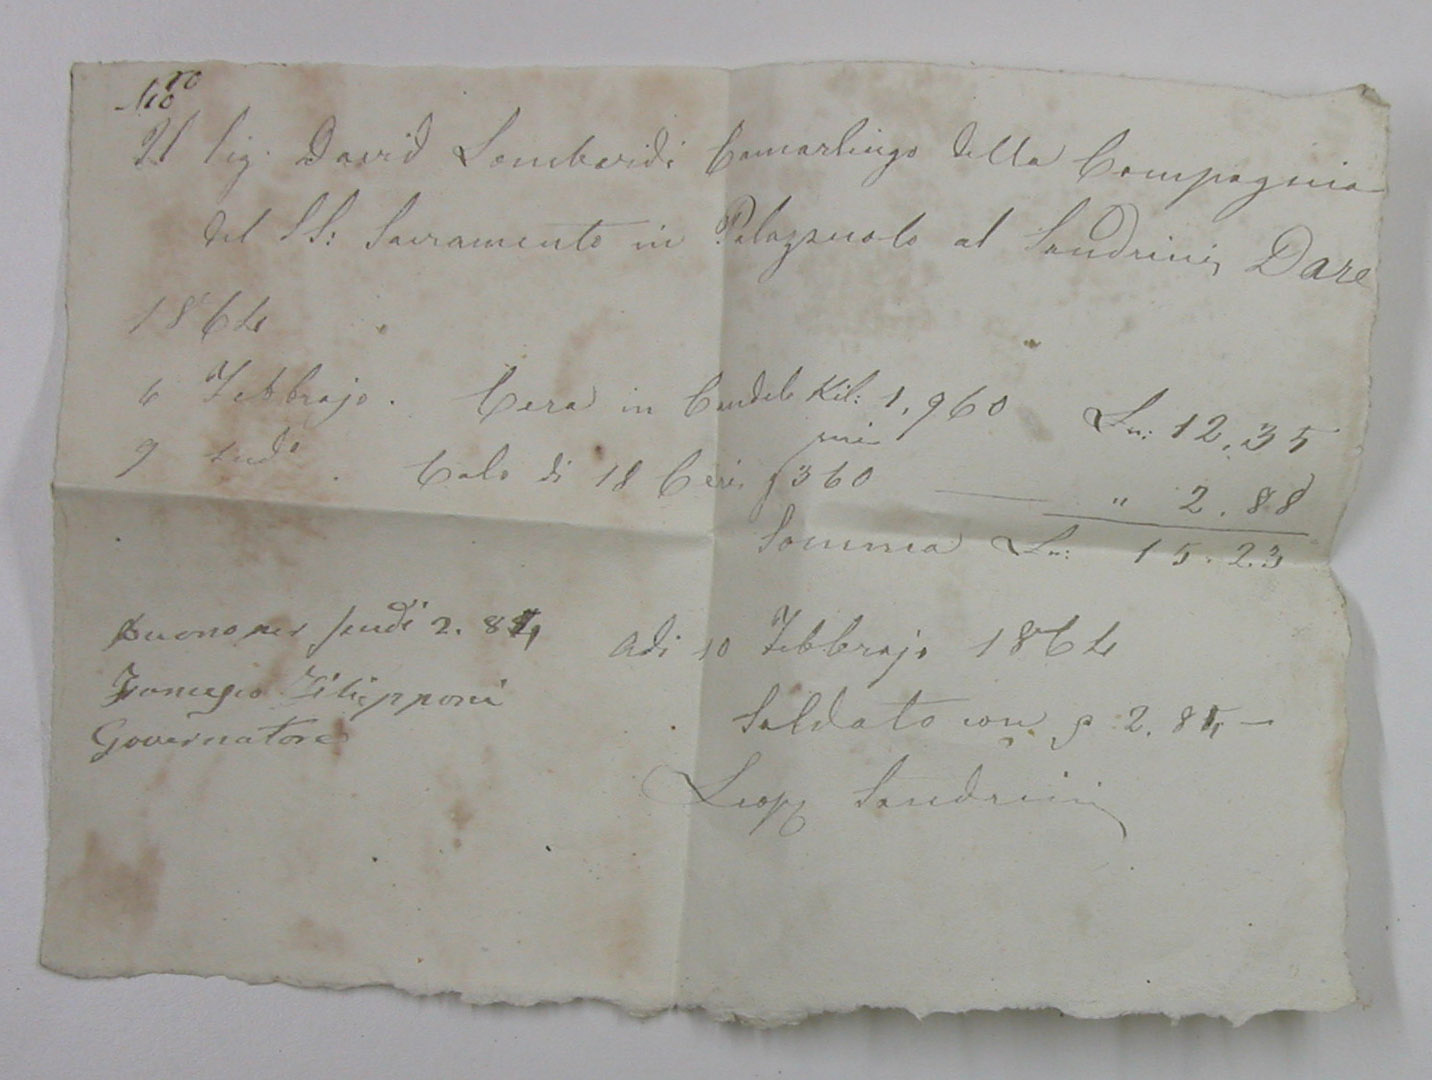 No 10
Il Sig. David Lombardi Camarlingo della Compagnia
del SS: Sacramento in Palazzuolo al Sandrini Dare
1864
6 Febbrajo. Cera in Candele Kil: 1,960 Ln: 12,35
9 sudo. Calo di 18 Ceri g 360 " 2.88
Somma Ln: 15.23
Buono per scudi 2. 84
Francesco Filipponi
Governatore
Adi 10 Febbrajo 1864
Saldato con 2. 84 —
Leop Sandrini